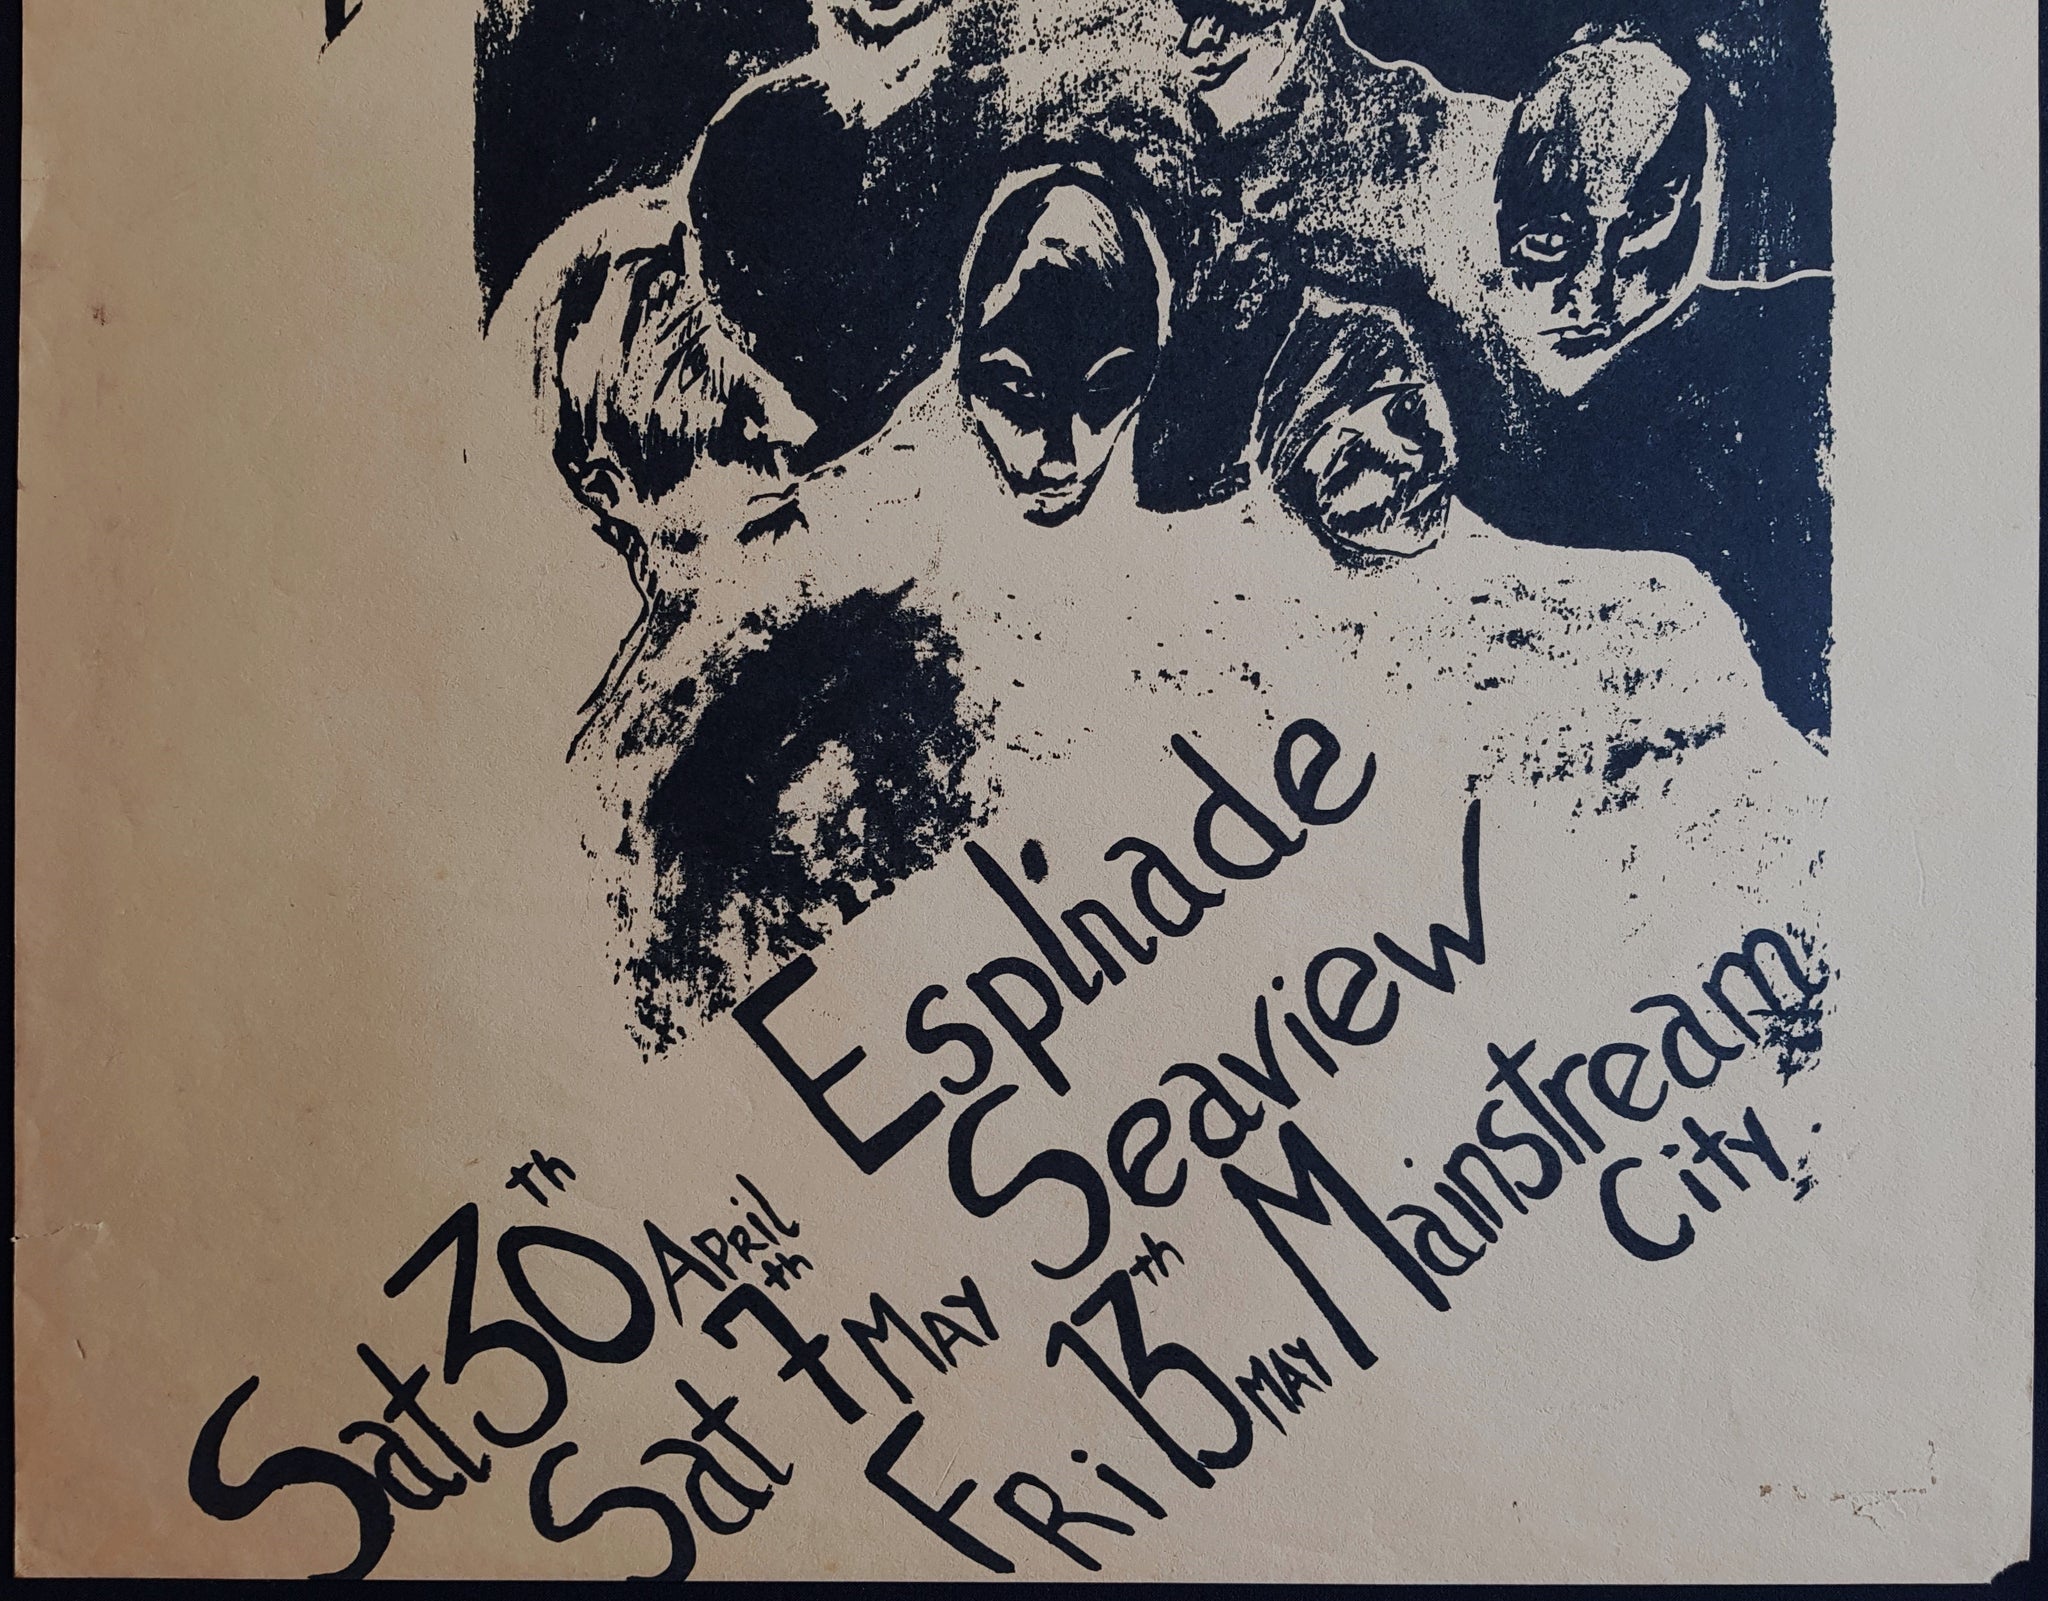 Sat 30th April Esplinade
Sat 7th May Seaview
Fri 13th May Mainstream
City.